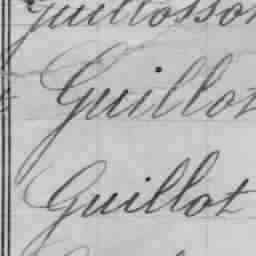 Guillosson
Guillot
Guillot